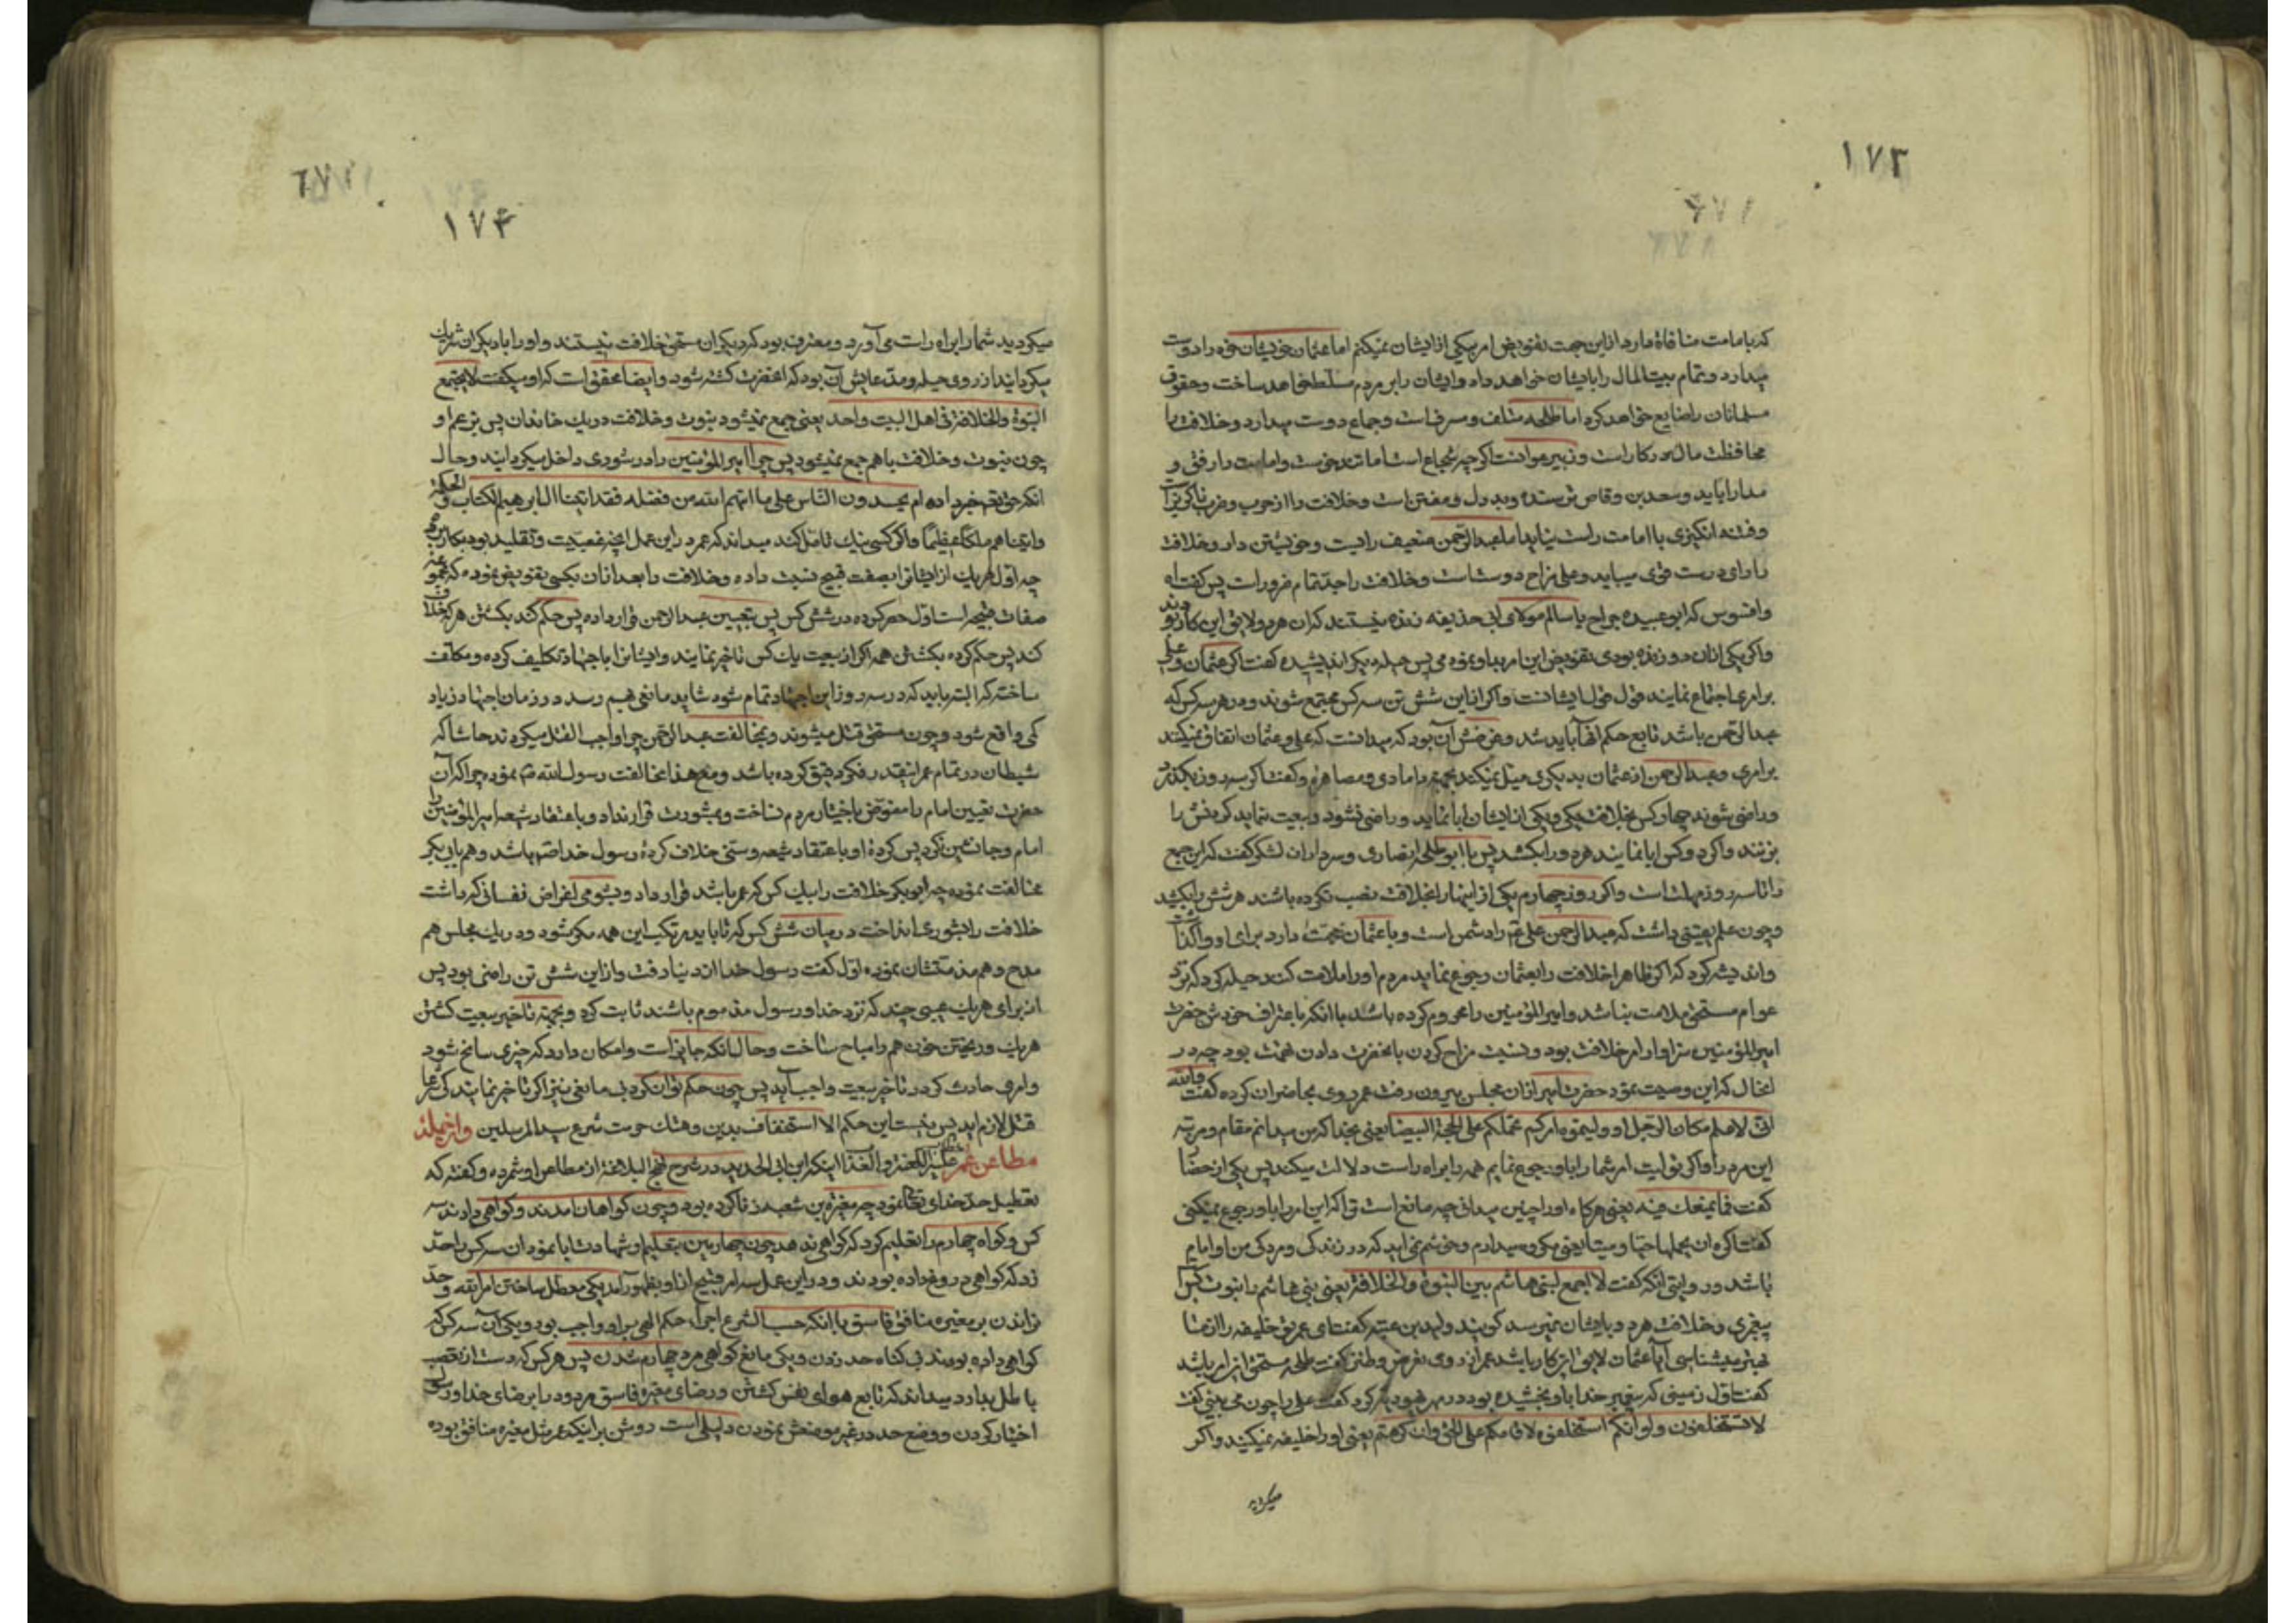 ۱۷۳
که با امامت منافاة دارد از این جهت تفویض امر بیکی از ایشان نمیکنم اما عثمان خویشان خود را دوست
میدارد و تمام بیت المال را بایشان خواهد داد و ایشان را بر مردم مسلط خواهد ساخت و حقوق
مسلمانان را ضایع خواهد کرد اما طلحه متلف و مسرف است و جماع دوست میدارد و خلافت را
محافظت مال در کار است و زبیر هر اگرچه شجاع است اما تندخوست و امامت را رفق و
مدارا باید و سعد بن وقاص ترسنده و بددل و مفتن است و خلافت را از حرب و ضرب ناگزیر است
و فتنه انگیزی با امامت راست نیاید اما عبدالرحمن ضعیف رایست و خویشتن دار و خلافت
را رای درست قوی میباید و علی مزاح دوستست و خلافت را جد تمام ضرورات پس گفت اه
وافسوس که ابو عبیده جراح یا سالم مولای ابی حذیفه زنده نیستند که ان هر دو لایق این کار بودند
واگر یکی از ان دو زنده بودی تفویض این امر باو نمودمی پس حیله دیگر اندیشیده گفت اگر عثمان و علی
بر امری اجتماع نمایند قول قول ایشانست و اگر از این شش تن سه کس مجتمع شوند و در هر سه کس که
عبدالرحمن باشد تابع حکم انها باید شد و غرضش آن بود که میدانست که علی و عثمان اتفاق نمیکنند
بر امری و عبدالرحمن از عثمان بدیگری میل نمیکند بجهة دامادی و مصاهره و گفت اگر سه روز بگذرد
و راضی شوند چهار کس بخلافت یکی و یکی از ایشان ابا نماید و راضی نشود و بیعت ننماید گردنش را
بزنند و اگر دو کس ابا نمایند هر دو را بکشد پس با ابو طلحه انصاری و سرداران لشکر گفت که این جمع
را تا سه روز مهلت است و اگر روز چهارم یکی از اینها را بخلافت نصب نکرده باشند هر شش را بکشید
و چون علم یقینی داشت که عبدالرحمن علی را دشمن است و با عثمان دارد برای او واگذاشت
واندیشه کرد که اگر ظاهرا خلافت را بعثمان رجوع نماید مردم او را ملامت کنند حیله کرد که نزد
عوام مستحق ملامت نباشد و امیرالمؤمنین را محروم کرده باشد با انکه باعتراف خودش حضرت
امیرالمؤمنین سزاوار امر خلافت بود و نسبت مزاح کردن بانحضرت دادن تهمت بود چه در
انحال که این وصیت نمود حضرت امیر از ان مجلس بیرون رفت عمر روی بحاضران کرده گفت والله
انی لاعلم مکان الرجل لو ولیتموه امرکم حملکم علی المحجة البیضا یعنی بخدا که من میدانم مقام و مرتبه
این مرد را و اگر تولیت امر شما را باو رجوع نمایم همه را براه راست دلالت میکند پس یکی از حضار
گفت فما یمنعک منه یعنی هرگاه او را چنین میدانی چه مانع است تو را که این امر را باو رجوع نمیکنی
گفت اکره ان یحملها حیا و میتا یعنی مکروه میدارم و خوشم نمی اید که در زندگی و مردگی من او امام
باشد و در روایتی انکه گفت لا اجمع لبنی هاشم بین النبوة والخلافة یعنی بنی هاشم را نبوت بس است
پیغمبری و خلافت هر دو بایشان نمیرسد گویند ولید بن عتبه گفت ای عمر تو خلیفه را از ما
بهتر میشناسی آیا عثمان لایق این کار باشد عمر از روی گفت طلحه مستحق این امر باشد
گفت اول زمینی که پیغمبر خدا باو بخشیده بود در مهر یهودیه کرد گفت علی را چون می بینی گفت
لا تستخلفونه ولو انکم استخلفتموه لاقامکم علی الحق وان کرهتم یعنی او را خلیفه نمیکنید و اگر
میکردید
۱۷۴
میکردید شما را براه راست می آورد و معترف بود که دیگران مستحق خلافت نیستند و او را با دیگران شریک
میگرداند از روی حیله و مدعایش آن بود که انحضرت کشته شود و ایضا محقق است که او میگفت لا یجتمع
النبوة والخلافة فی اهل البیت واحد یعنی جمع نمیشود نبوت و خلافت در یک خاندان پس بزعم او
چون نبوت و خلافت با هم جمع نمیشود پس چرا امیرالمؤمنین را در شوری داخل میگرداند و حال
انکه حق تعم خبر داده ام یحسدون الناس علی ما اتیهم الله من فضله فقد اتینا ال ابرهیم الکتاب والحکمة
واتیناهم ملکا عظیما و اگر کسی نیک تامل کند میداند که عمر در این عمل انچه عصبیت و تقلید بود بکار برده
چه اول هر یک از ایشانرا بصفت قبیح نسبت داده و خلافت را بعد از ان بکسی تفویض نموده که مجموعه
صفات قبیحه است اول حصر کرده در شش کس پس بتعیین عبدالرحمن قرار داده پس حکم کند بکشتن هر که خلاف
کند پس حکم کرده بکشتن همه اگر از بیعت یک کس تاخیر نمایند و ایشانرا باجتهاد تکلیف کرده و مکلف
ساخته که البته باید که در سه روز این اجتهاد تمام شود شاید مانعی بهم رسد و در زمان اجتهاد زیاد
کمی واقع شود و چون مستحق قتل میشوند و بمخالفت عبدالرحمن چرا واجب القتل میگردند حاشا که
شیطان در تمام عمر اینقدر فکر دقیق کرده باشد و مع هذا مخالفت رسول الله نموده چرا که آن
حضرت تعیین امام را مفوض باختیار مردم نساخت و بمشورت قرار نداد و باعتقاد شیعه امیرالمؤمنین را
امام و جانشین کرد پس کرده او باعتقاد شیعه و سنی خلاف کرده رسول خدا باشد و هم بابی بکر
مخالفت نموده چه ابوبکر خلافت را بیک کس که عمر باشد قرار داد و بشومی اغراض نفسانی که داشت
خلافت را بشوری انداخت در میان شش کس که تا باید مرتکب این همه مکر شود و در یک مجلس هم
مدح و هم مذمتشان نموده اول گفت رسول خدا از دنیا رفت و از این شش تن راضی بود پس
از برای هر یک عیبی چند که نزد خدا و رسول مذموم باشند ثابت کرد و بجهة تاخیر بیعت کشتن
هر یک و ریختن خون همه را مباح ساخت و حال انکه جایز است و امکان دارد که چیزی سانح شود
و امری حادث گردد تاخیر بیعت واجب آید پس چون حکم توان کرد بی مانعی نیز اگر تاخیر نمایند کی شرعا
قتل لازم اید پس نیست این حکم الا استخفاف بدین و هتک حرمت شرع سید المرسلین و از جمله
مطاعن عمر علیه اللعنة والعذاب اینکه ابن ابی الحدید در شرح نهج البلاغة از مطاعن او شمرده و گفته که
تعطیل حد خدای تعالی نمود چه مغیرة بن شعبه زنا کرده بود و چون گواهان امدند و گواهی دادند سه
کس و گواه چهارم را تعلیم کرد که گواهی ندهد چون چهارمین بتعلیم او شهادت ابا نمود ان سه کس را حد
زد که گواهی دروغ داده بودند و در این عمل سه امر قبیح از او بظهور آمد یکی معطل ساختن امر الله و حد
نزدن بر مغیره منافق فاسق با انکه حسب الشرع اجراء حکم الهی بر او واجب بود و یکی آن سه کس که
گواهی داده بودند بی گناه حد زدن و یکی مانع گواهی مرد چهارم شدن پس هر کس که دست از تعصب
باطل بدارد میداند که تابع هوای نفس گشتن و رضای مغیره فاسق مردود را بر رضای خدا و رسول
اختیار کردن و وضع حد در غیر موضعش نمودن دلیلی است روشن بر اینکه عمر مثل مغیره منافق بوده